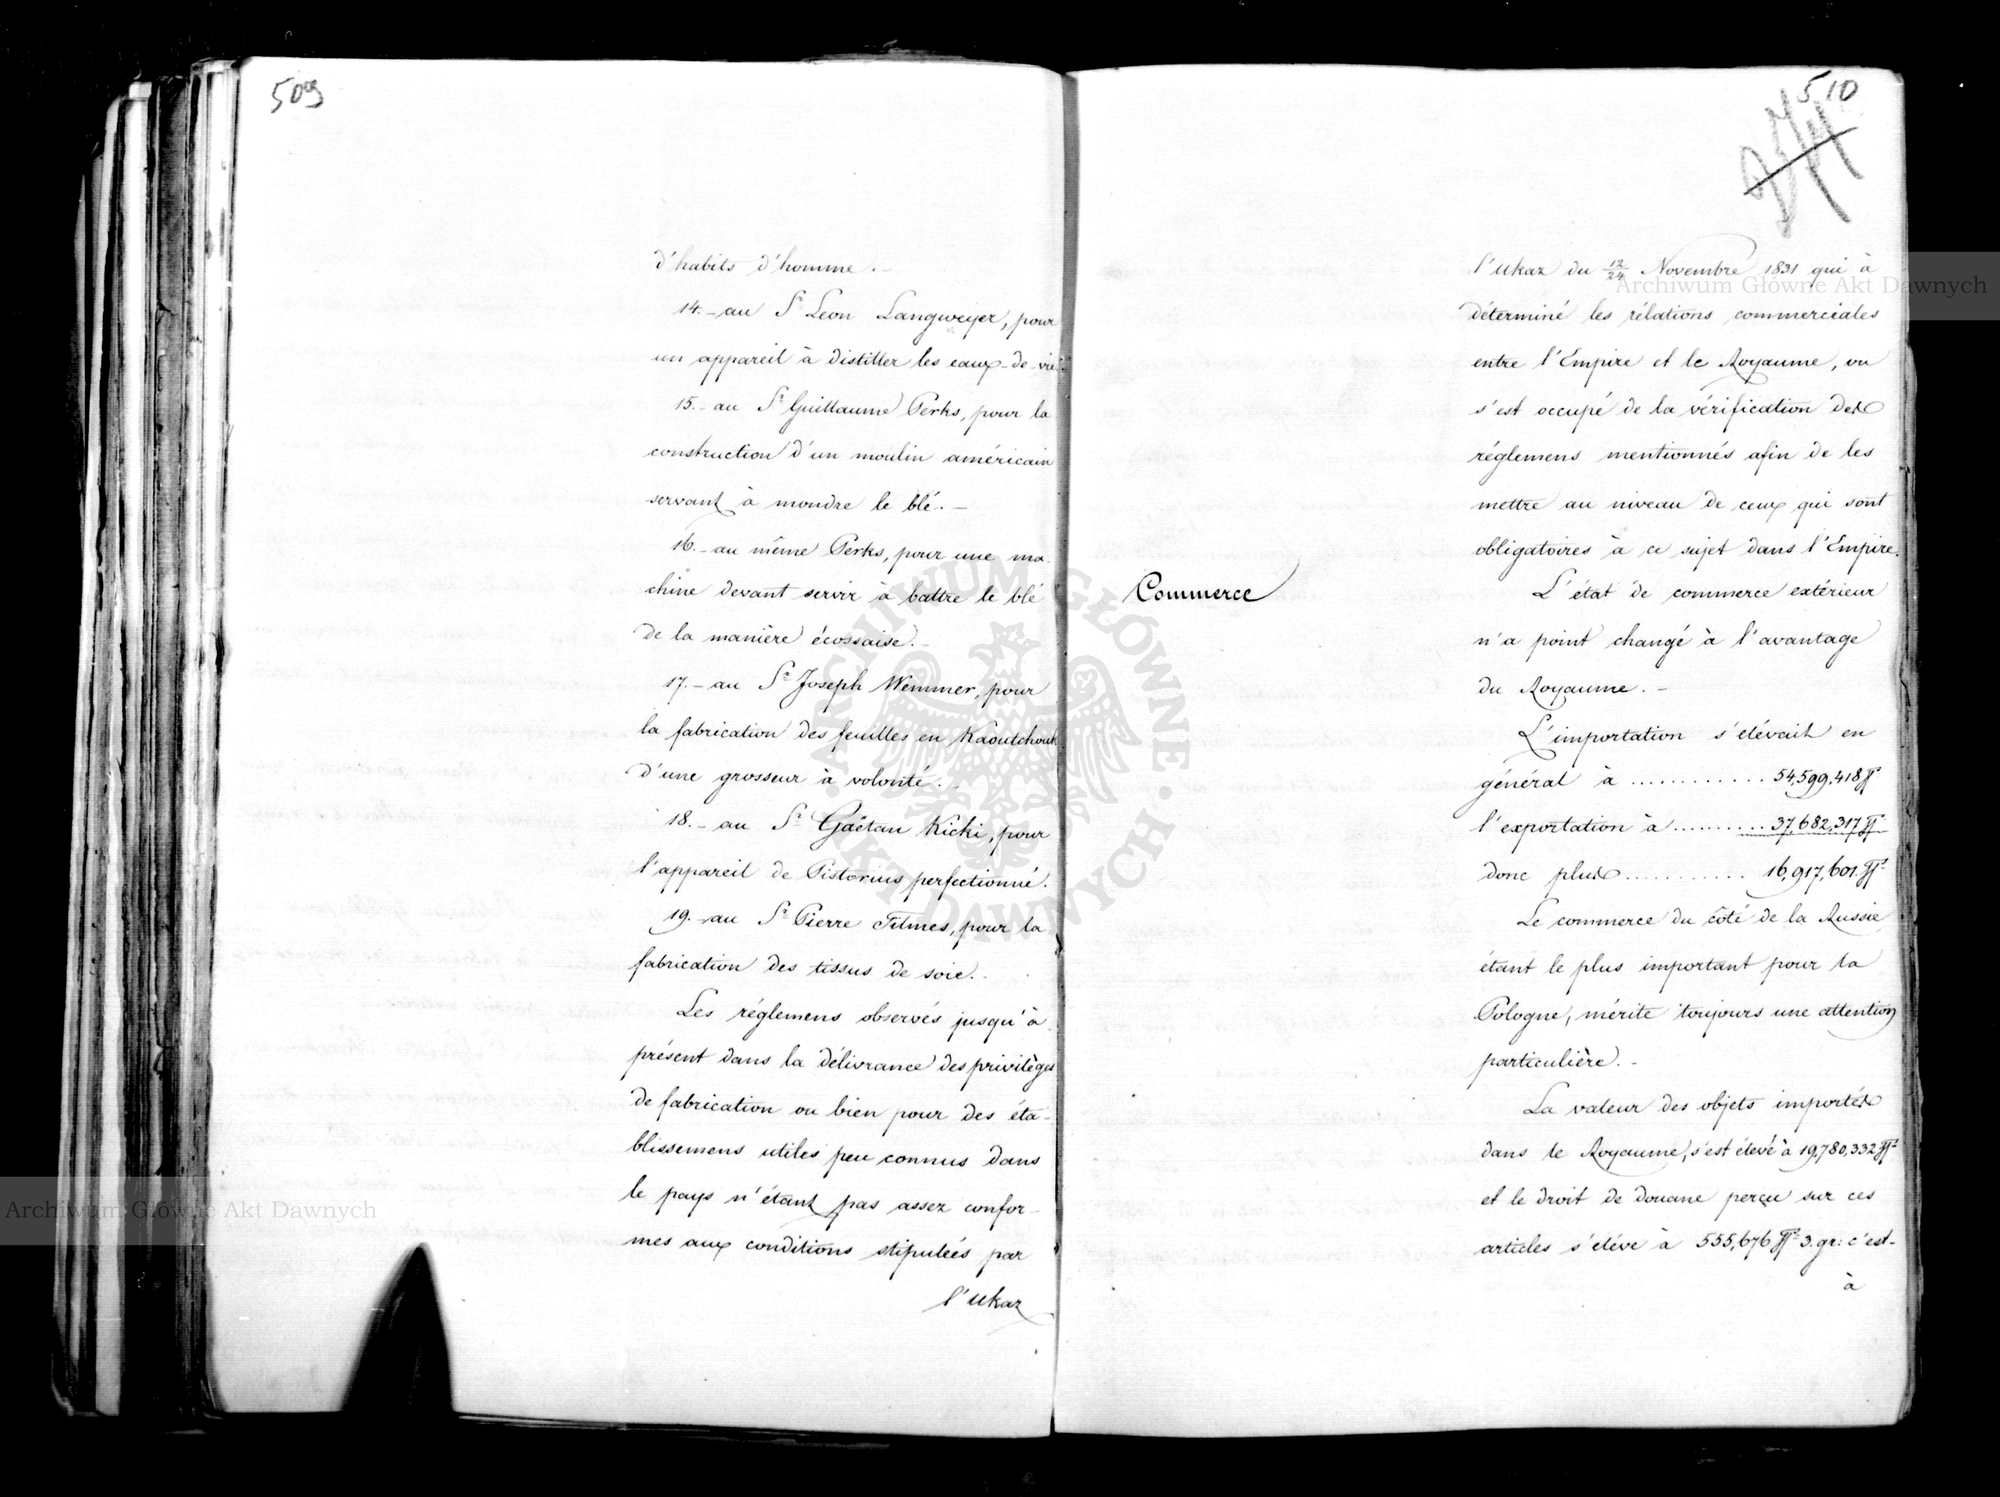 509
d'habits d'homme. —
14. — au Sr Leon Langweyer, pour
un appareil à distiller les eaux-de-vie.
15. — au Sr Guillaume Perks, pour la
construction d'un moulin américain
servant à moudre le blé. —
16. — au même Perks, pour une ma-
chine devant servir à battre le blé
de la manière écossaise. —
17. — au Sr Joseph Wemmer, pour
la fabrication des feuilles en Kaoutchouk
d'une grosseur à volonté. —
18. — au Sr Gaëtan Kicki, pour
l'appareil de Pistorius perfectionné.
19. — au Sr Pierre Filmes, pour la
fabrication des tissus de soie. —
Les réglemens observés jusqu'à
présent dans la délivrance des privilèges
de fabrication ou bien pour des éta-
blissemens utiles peu connus dans
le pays n'étant pas assez confor-
mes aux conditions stipulées par
l'ukaz
510
l'ukaz du 12/24 Novembre 1831 qui à
déterminé les rélations commerciales
entre l'Empire et le Royaume, ou
s'est occupé de la vérification des
réglemens mentionnés afin de les
mettre au niveau de ceux qui sont
obligatoires à ce sujet dans l'Empire.
Commerce
L'état de commerce extérieur
n'a point changé à l'avantage
du Royaume. —
L'importation s'élévait en
général à ............ 54,599,418 fl
l'exportation à ......... 37,682,317 fl
donc plus ........... 16,917,601 fls
Le commerce du côté de la Russie
étant le plus important pour la
Pologne, mérite toujours une attention
particulière. —
La valeur des objets importés
dans le Royaume, s'est élevé à 19,780,332 fls
et le droit de douane perçu sur ces
articles s'élève à 555,676 fls 3. gr: c'est-
à
Archiwum Główne Akt Dawnych
Archiwum Główne Akt Dawnych
ARCHIWUM GŁÓWNE AKT DAWNYCH